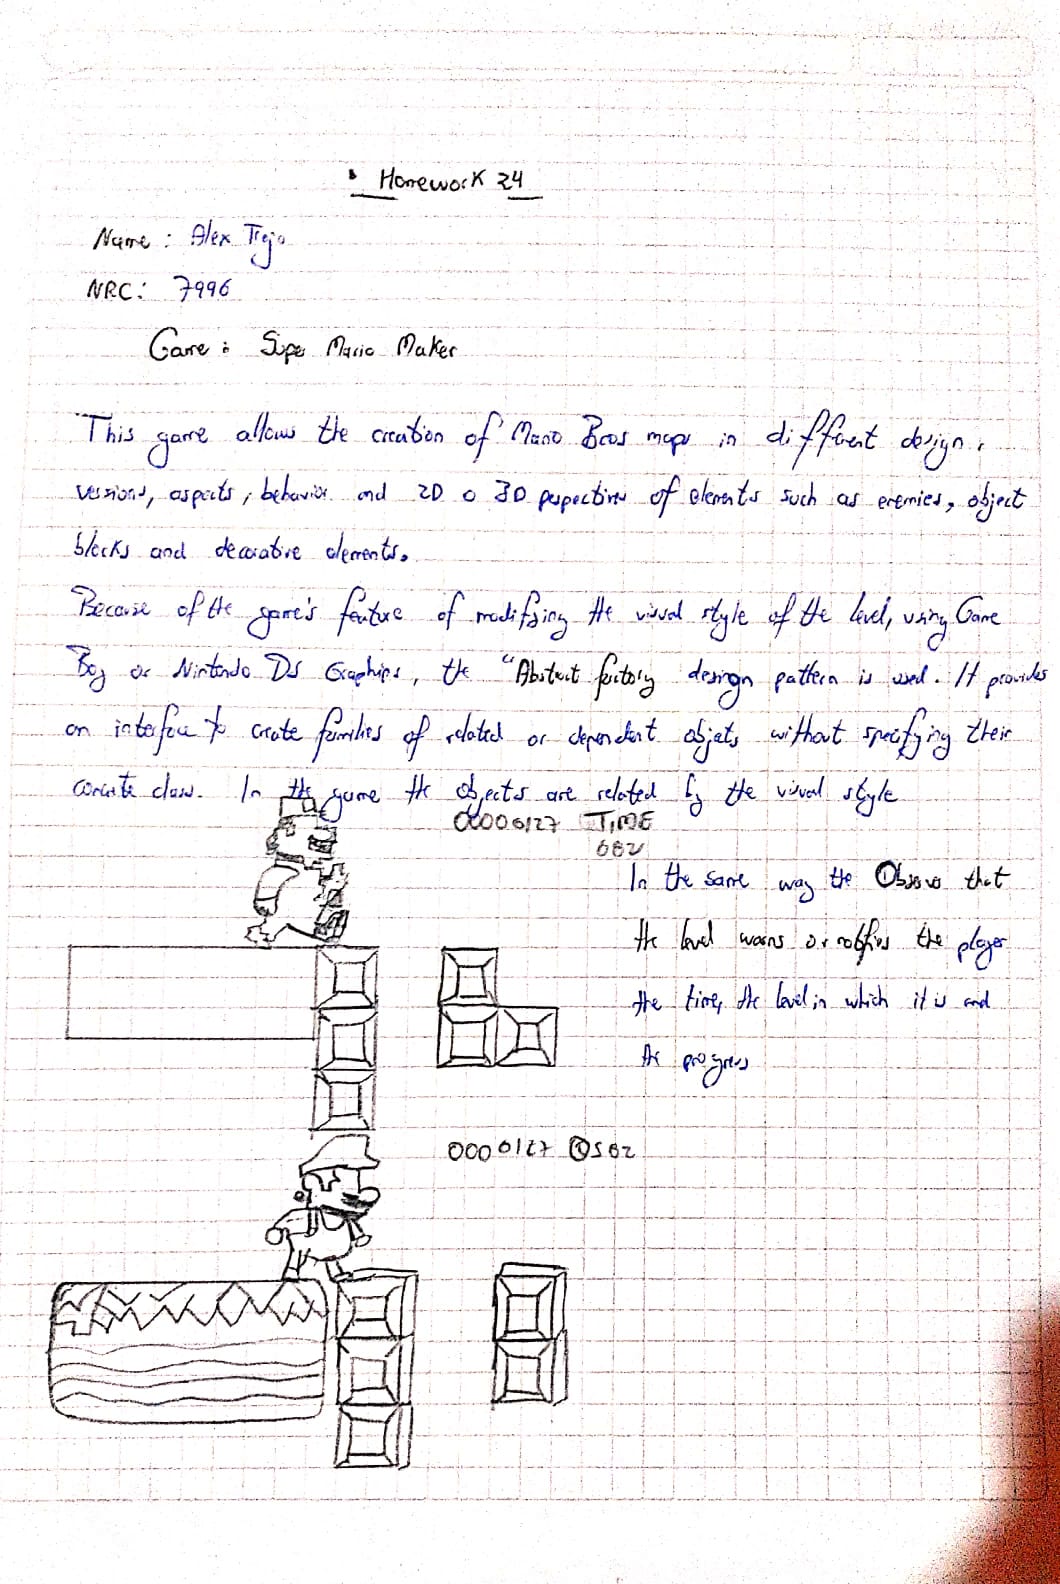 Homework 24
Name : Alex Trejo
NRC: 7996
Game : Super Mario Maker
This game allows the creation of Mario Bros maps in different design,
versions, aspects, behavior and 2D o 3D perspectives of elements such as enemies, object
blocks and decorative elements.
Because of the game's feature of modifying the visual style of the level, using Game
Boy or Nintendo DS Graphips, the "Abstract factory design pattern is used. It provides
an interface to create families of related or dependent objets without specifying their
concrete class. In the game the objects are related by the visual style
00000127 TIME
682
In the same way the Observer that
the level warns or notifies the player
the time, the level in which it is and
the progress
0000127 582